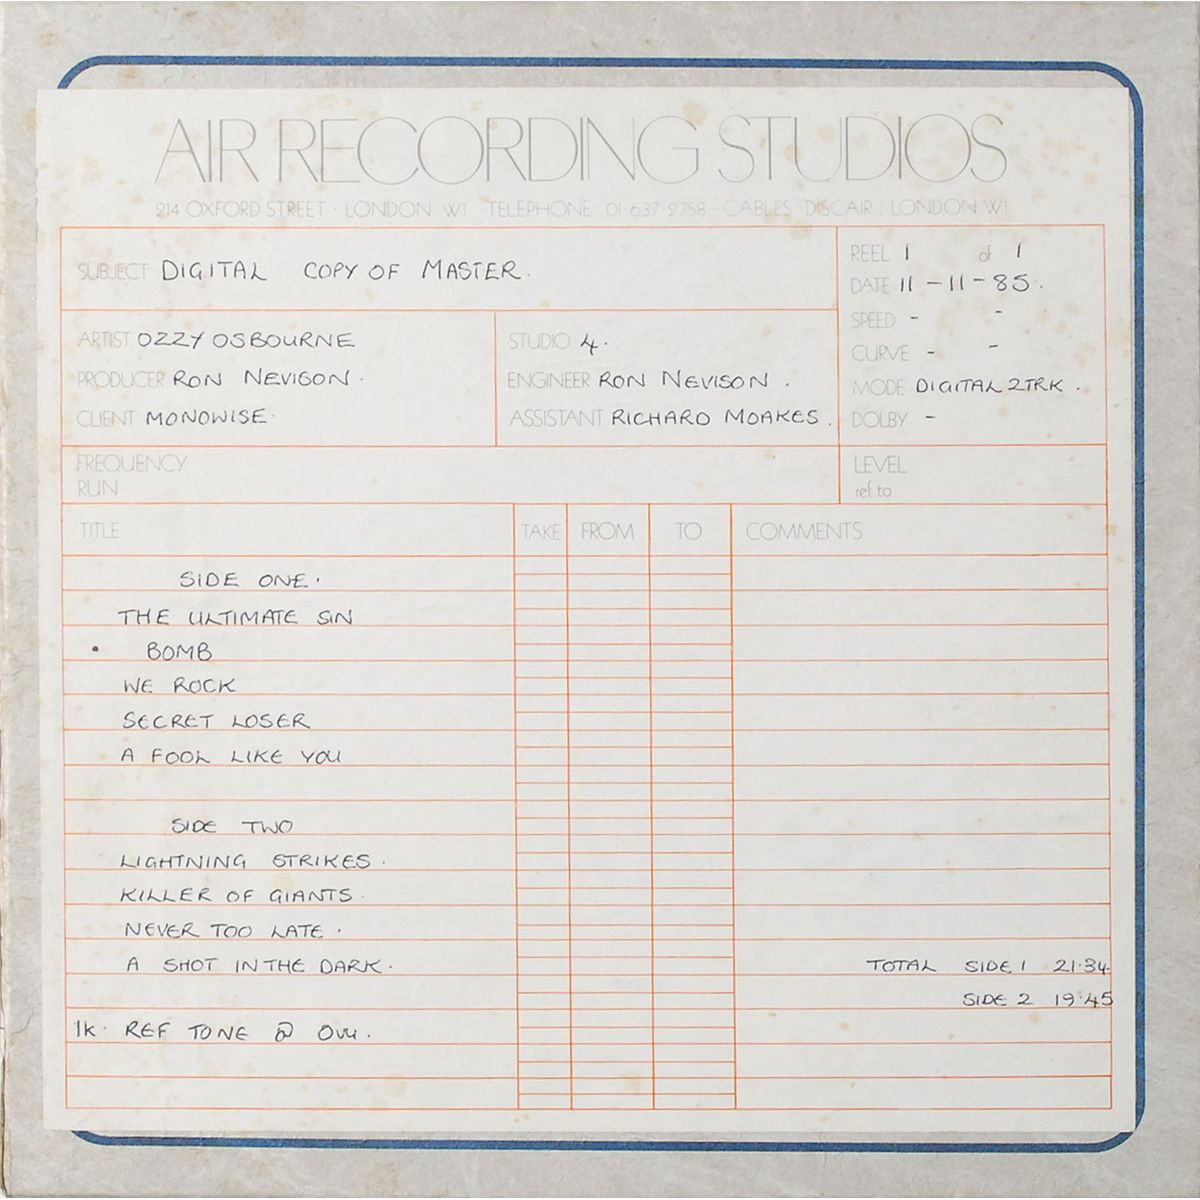 AIR RECORDING STUDIOS
214 OXFORD STREET · LONDON W1 TELEPHONE 01·637·2758 · CABLES · DISCAIR · LONDON W1
SUBJECT DIGITAL COPY OF MASTER.
REEL 1 of 1
DATE 11-11-85.
SPEED - -
CURVE - -
MODE DIGITAL 2TRK.
DOLBY -
ARTIST OZZY OSBOURNE
PRODUCER RON NEVISON.
CLIENT MONOWISE.
STUDIO 4.
ENGINEER RON NEVISON.
ASSISTANT RICHARD MOAKES.
FREQUENCY
RUN
LEVEL
ref to
TITLE TAKE FROM TO COMMENTS
SIDE ONE.
THE ULTIMATE SIN
• BOMB
WE ROCK
SECRET LOSER
A FOOL LIKE YOU
SIDE TWO
LIGHTNING STRIKES.
KILLER OF GIANTS.
NEVER TOO LATE.
A SHOT IN THE DARK. TOTAL SIDE 1 21·34
SIDE 2 19·45
1k. REF TONE @ 0vu.